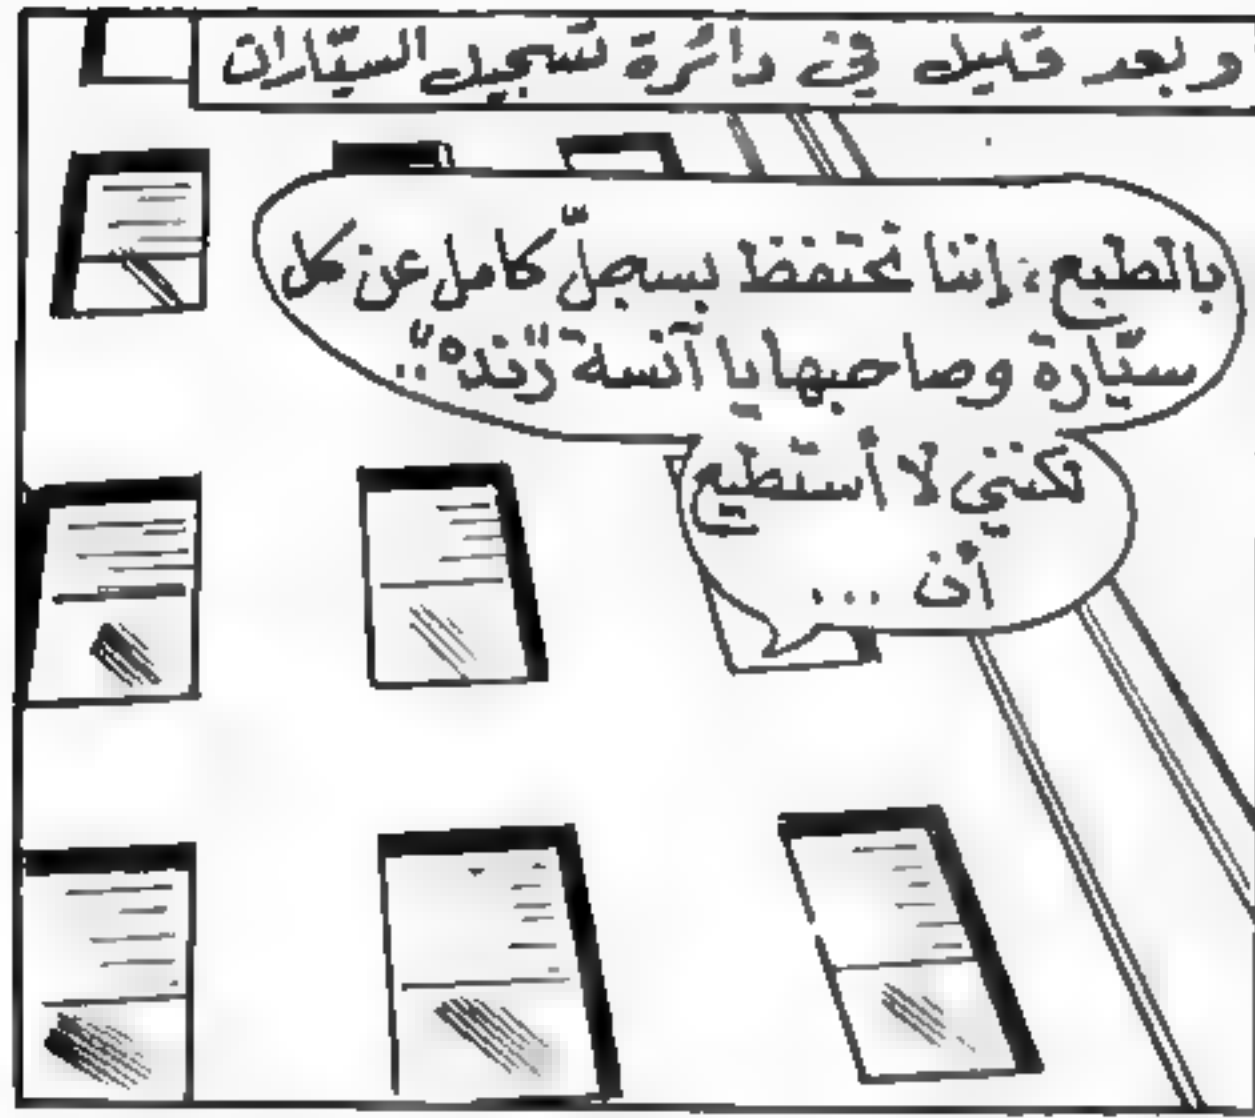 وبعد قليل في دائرة تسجيل السيّارات
بالطبع، إننا نحتفظ بسجلّ كامل عن كل
سيّارة وصاحبها يا آنسة "رنده"..
لكنني لا أستطيع
أن ...